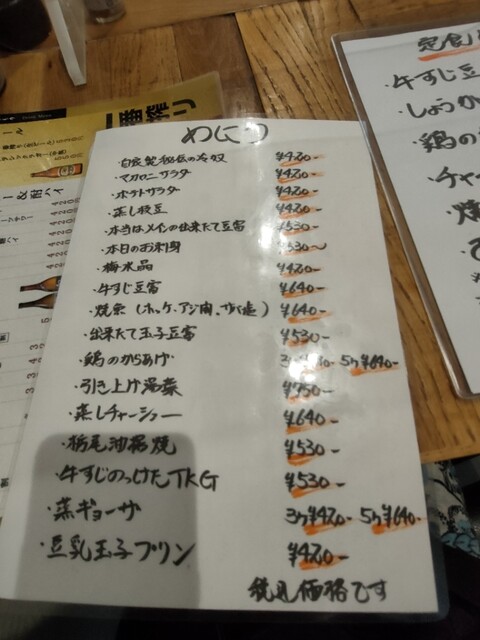 めにう
・自家製秘伝の冷奴 ¥420-
・マカロニサラダ ¥420-
・ポテトサラダ ¥420-
・蒸し枝豆 ¥420-
・本当はメインの出来たて豆富 ¥530-
・本日のお刺身 ¥530〜
・梅水晶 ¥420-
・牛すじ豆富 ¥640-
・焼魚(ホッケ、アジ開、サバ塩) ¥640-
・出来たて玉子豆富 ¥530-
・鶏のからあげ 5ヶ¥640-
・引き上げ湯葉 ¥750-
・蒸しチャーシュー ¥640-
・栃尾油揚焼 ¥530-
・牛すじのっけたTKG ¥530-
・蒸ギョーザ 3ヶ¥420- 5ヶ¥640-
・豆乳玉子プリン ¥420-
税込価格です
一番搾り
定食
・牛すじ豆
・しょうが
・鶏の
・チャー